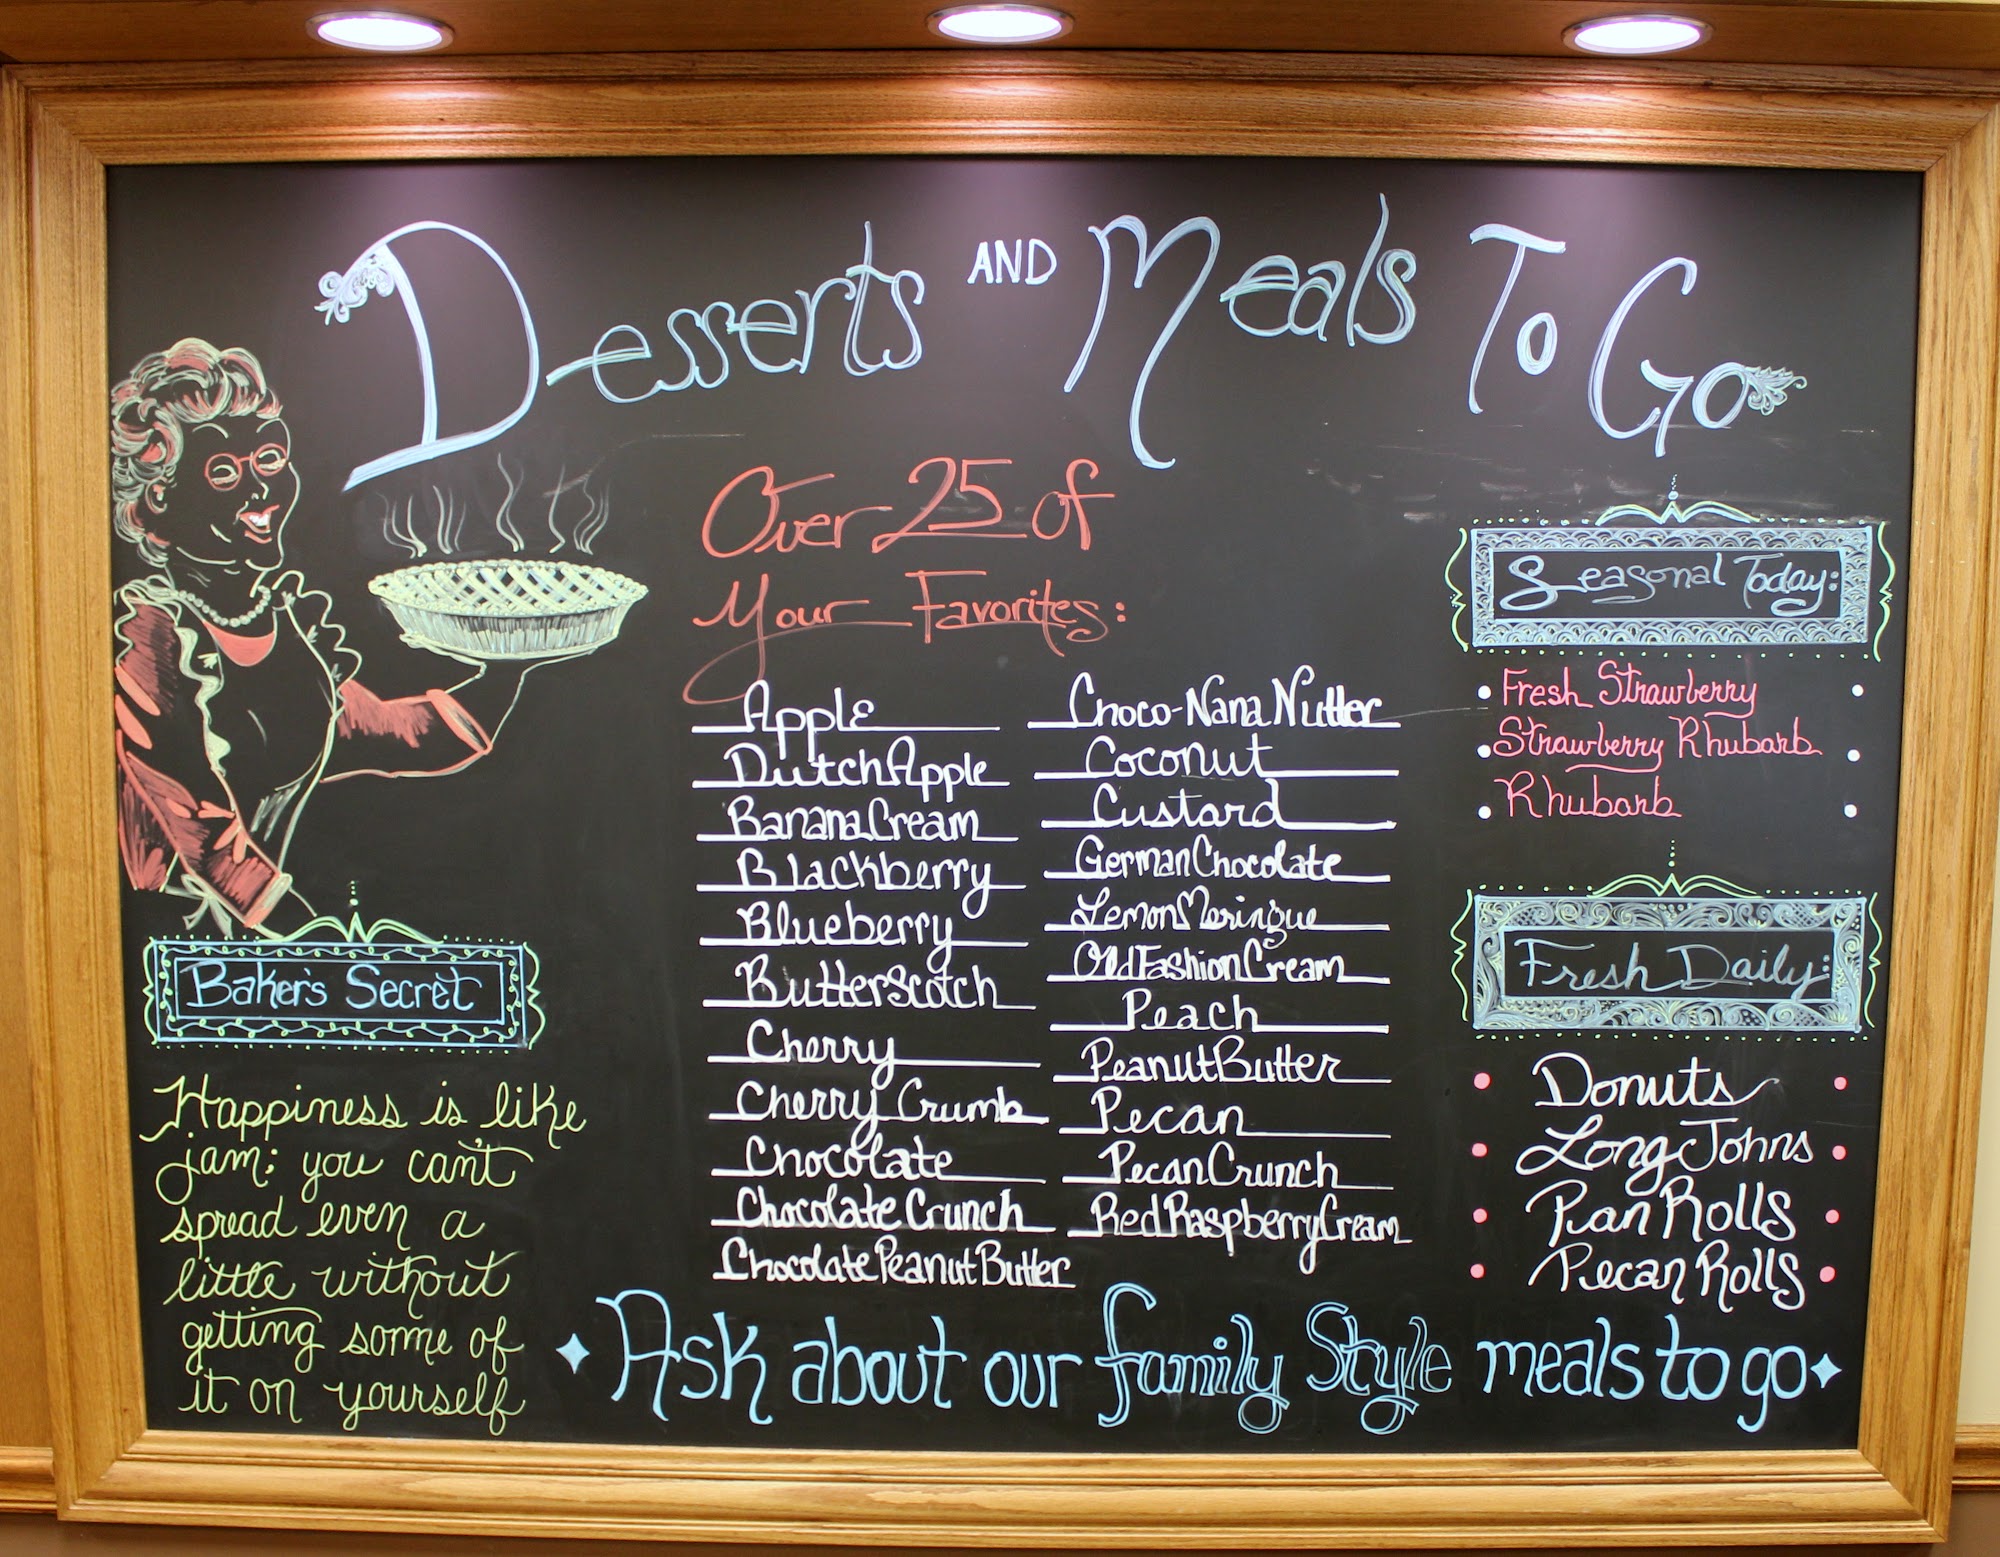 Desserts AND Meals To Go
Over 25 of
Your Favorites:
Apple
Dutch Apple
Banana Cream
Blackberry
Blueberry
Butterscotch
Cherry
Cherry Crumb
Chocolate
Chocolate Crunch
Chocolate Peanut Butter
Choco-Nana Nutter
Coconut
Custard
German Chocolate
Lemon Meringue
Old Fashion Cream
Peach
Peanut Butter
Pecan
Pecan Crunch
Red Raspberry Cream
Seasonal Today:
Fresh Strawberry
Strawberry Rhubarb
Rhubarb
Fresh Daily:
Donuts
Long Johns
Pan Rolls
Pecan Rolls
Baker's Secret
Happiness is like
jam; you can't
spread even a
little without
getting some of
it on yourself
Ask about our family Style meals to go